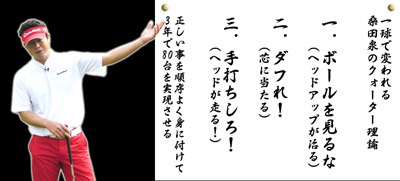 一球で変われる
桑田泉のクォーター理論
一．ボールを見るな
（ヘッドアップが治る）
二．ダフれ！
（芯に当たる）
三．手打ちしろ！
（ヘッドが走る！）
正しい事を順序よく身に付けて
3年で80台を実現させる